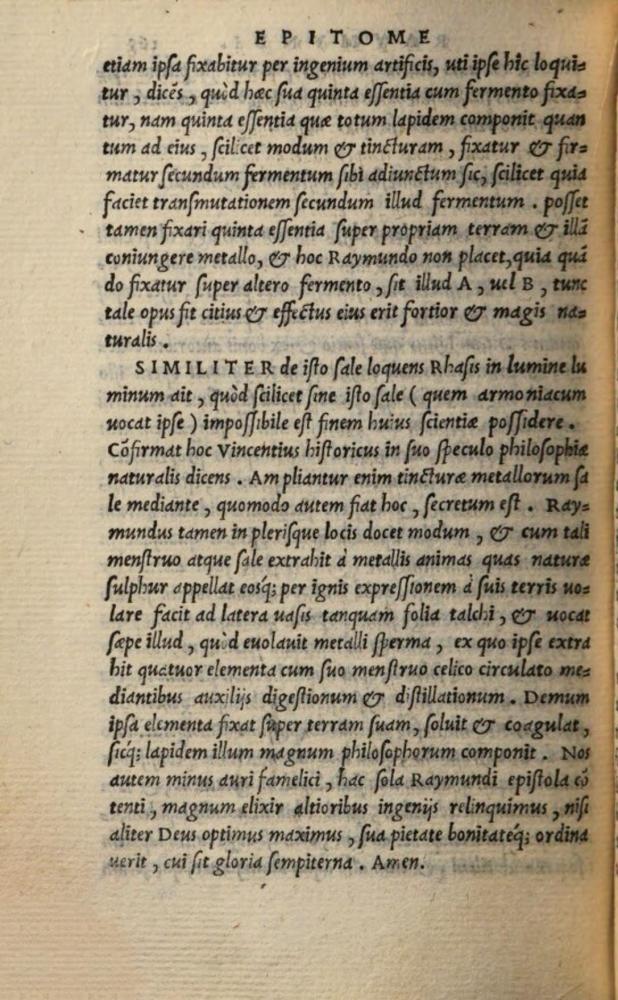 EPITOME
etiam ipsa fixabitur per ingenium artificis, uti ipse hic loqui-
tur, dicēs, quòd hæc sua quinta essentia cum fermento fixa-
tur, nam quinta essentia quæ totum lapidem componit quan
tum ad eius, scilicet modum & tincturam, fixatur & fir-
matur secundum fermentum sibi adiunctum sic, scilicet quia
faciet transmutationem secundum illud fermentum. posset
tamen fixari quinta essentia super propriam terram & illā
coniungere metallo, & hoc Raymundo non placet, quia quā
do fixatur super altero fermento, sit illud A, uel B, tunc
tale opus fit citius & effectus eius erit fortior & magis na-
turalis.
SIMILITER de isto sale loquens Rhasis in lumine lu
minum ait, quòd scilicet sine isto sale (quem armoniacum
uocat ipse) impossibile est finem huius scientiæ possidere.
Cōfirmat hoc Vincentius historicus in suo speculo philosophiæ
naturalis dicens. Ampliantur enim tincturæ metallorum sa
le mediante, quomodo autem fiat hoc, secretum est. Ray-
mundus tamen in plerisque locis docet modum, & cum tali
menstruo atque sale extrahit à metallis animas quas naturæ
sulphur appellat eosq; per ignis expressionem à suis terris uo-
lare facit ad latera uasis tanquam folia talchi, & uocat
sæpe illud, quòd euolauit metalli sperma, ex quo ipse extra
hit quatuor elementa cum suo menstruo celico circulato me-
diantibus auxilijs digestionum & distillationum. Demum
ipsa elementa fixat super terram suam, soluit & coagulat,
sicq; lapidem illum magnum philosophorum componit. Nos
autem minus auri famelici, hac sola Raymundi epistola cō
tenti, magnum elixir altioribus ingenijs relinquimus, nisi
aliter Deus optimus maximus, sua pietate bonitateq; ordina
uerit, cui sit gloria sempiterna. Amen.